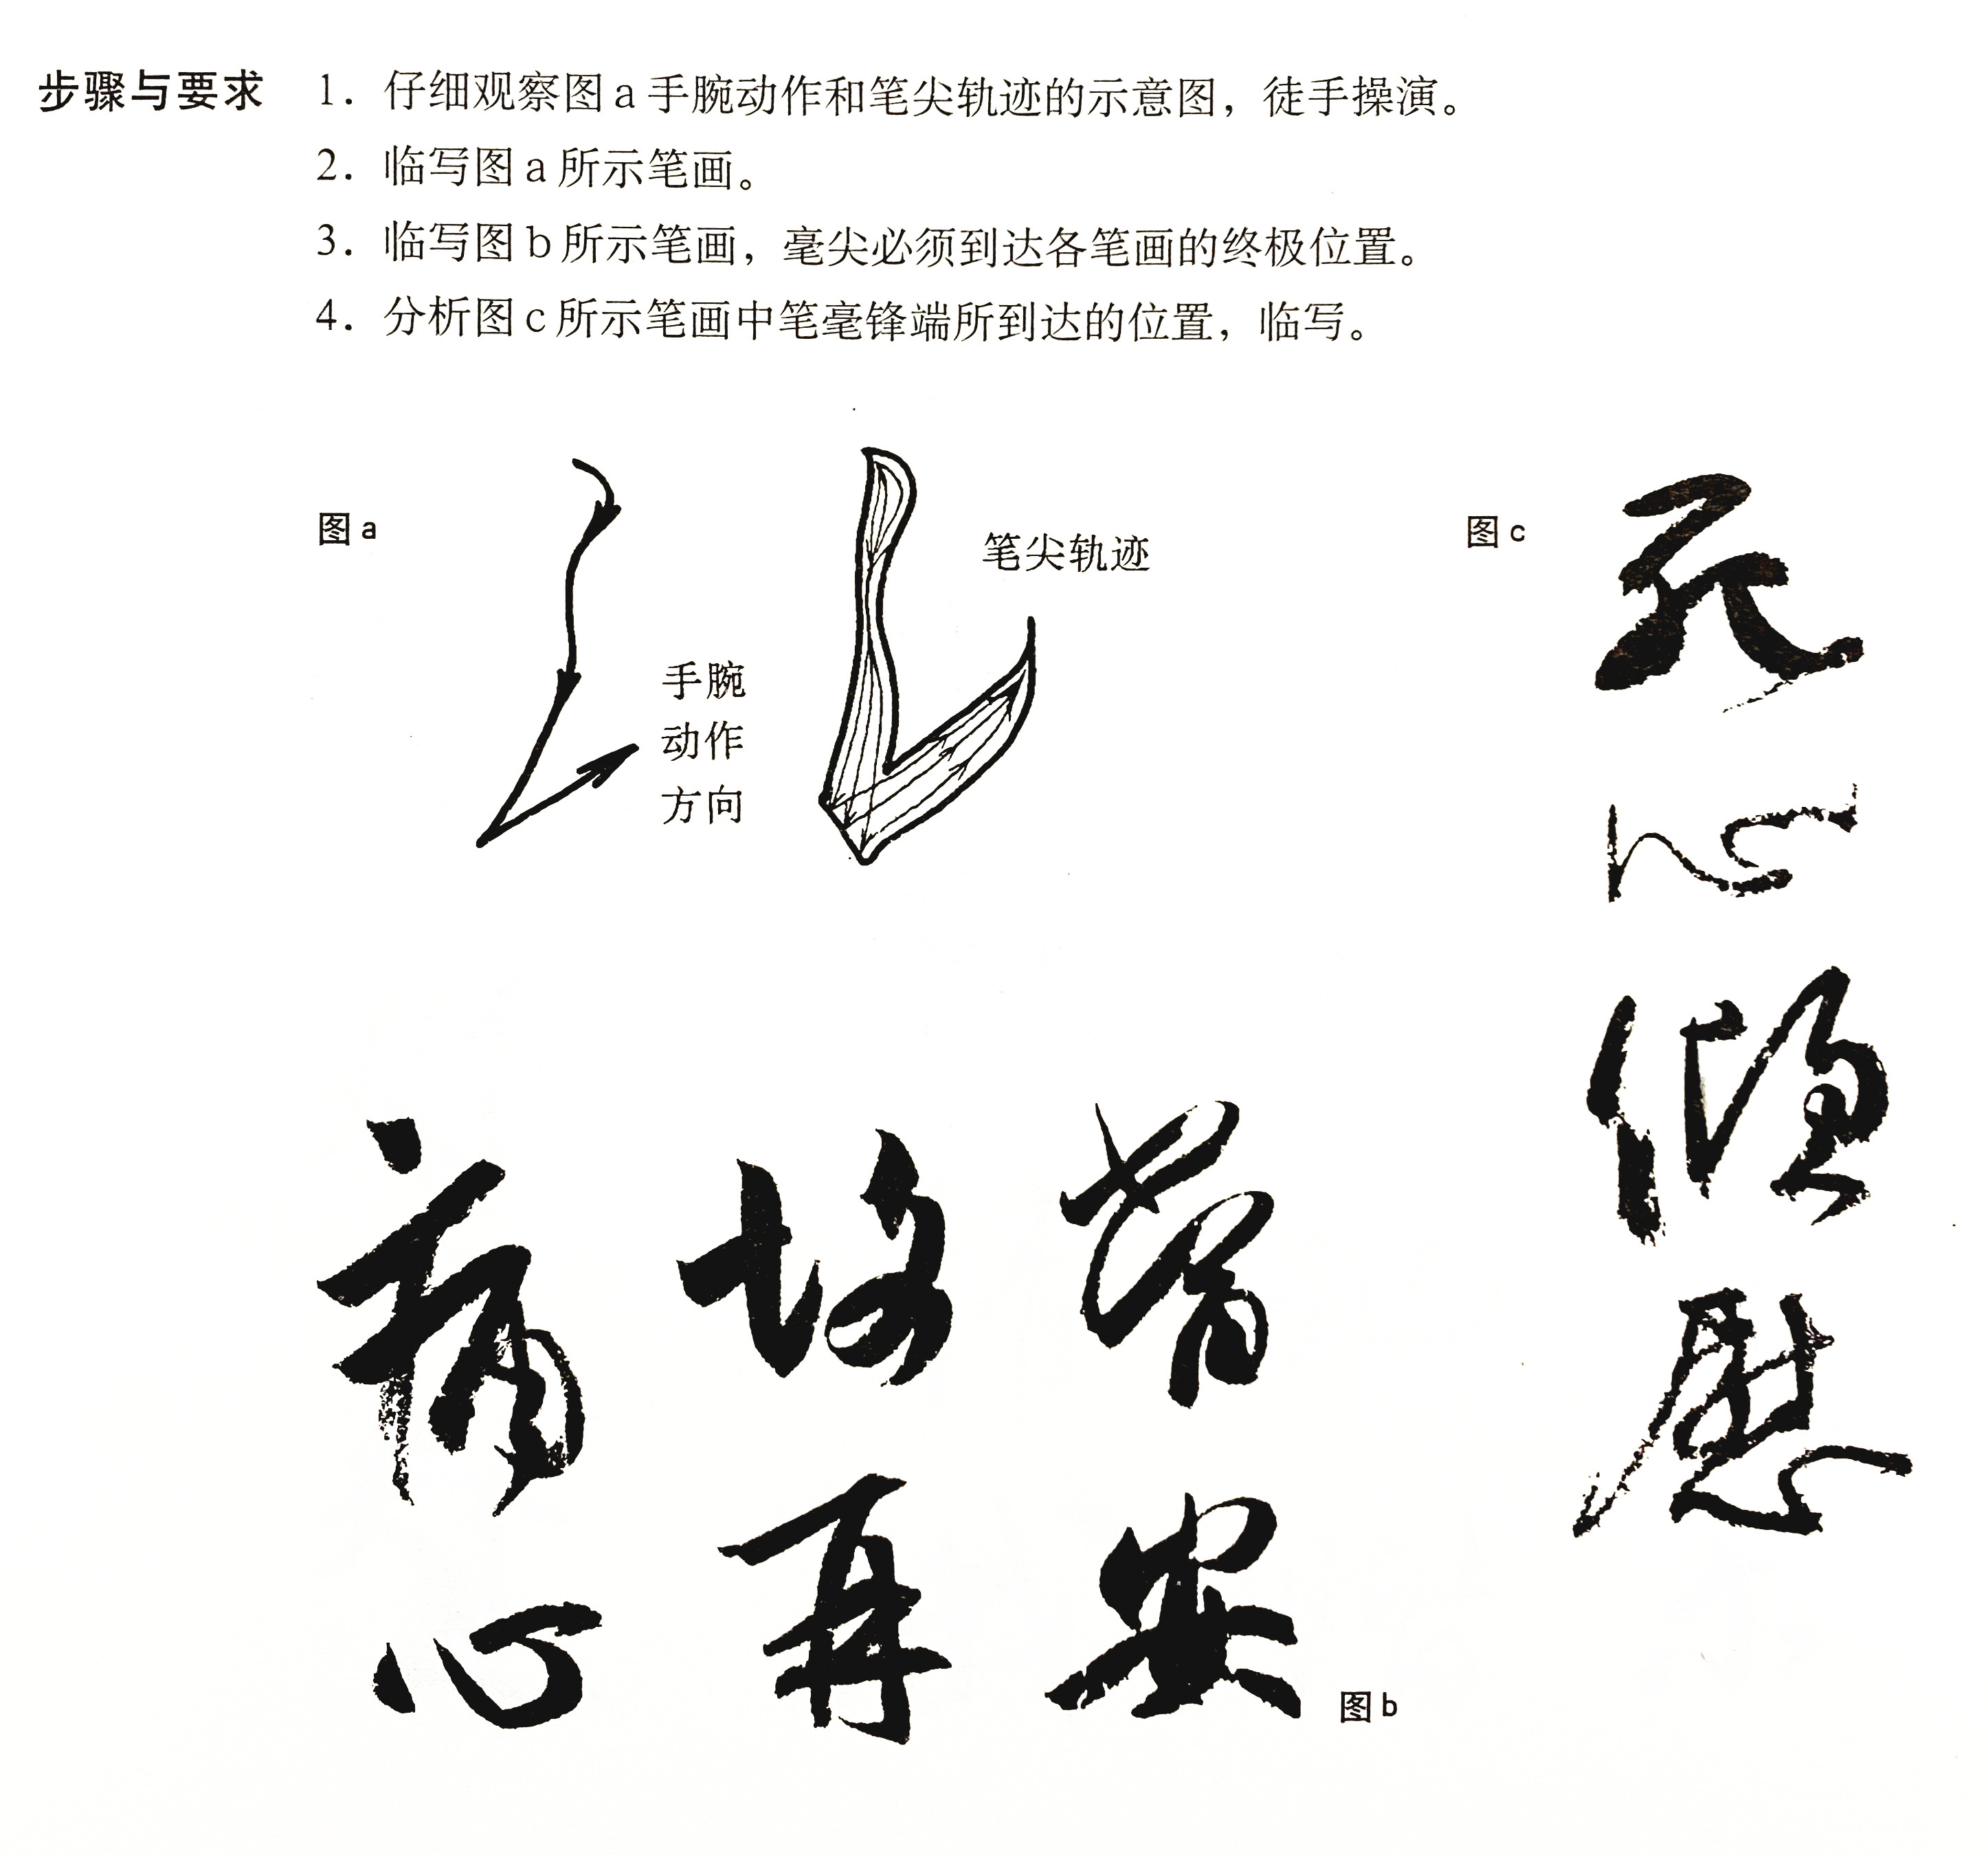 步骤与要求 1. 仔细观察图a手腕动作和笔尖轨迹的示意图，徒手操演。
2. 临写图a所示笔画。
3. 临写图b所示笔画，毫尖必须到达各笔画的终极位置。
4. 分析图c所示笔画中笔毫锋端所到达的位置，临写。
图a
手腕
动作
方向
笔尖轨迹
图c
心
慰
痛
心
再
安
图b